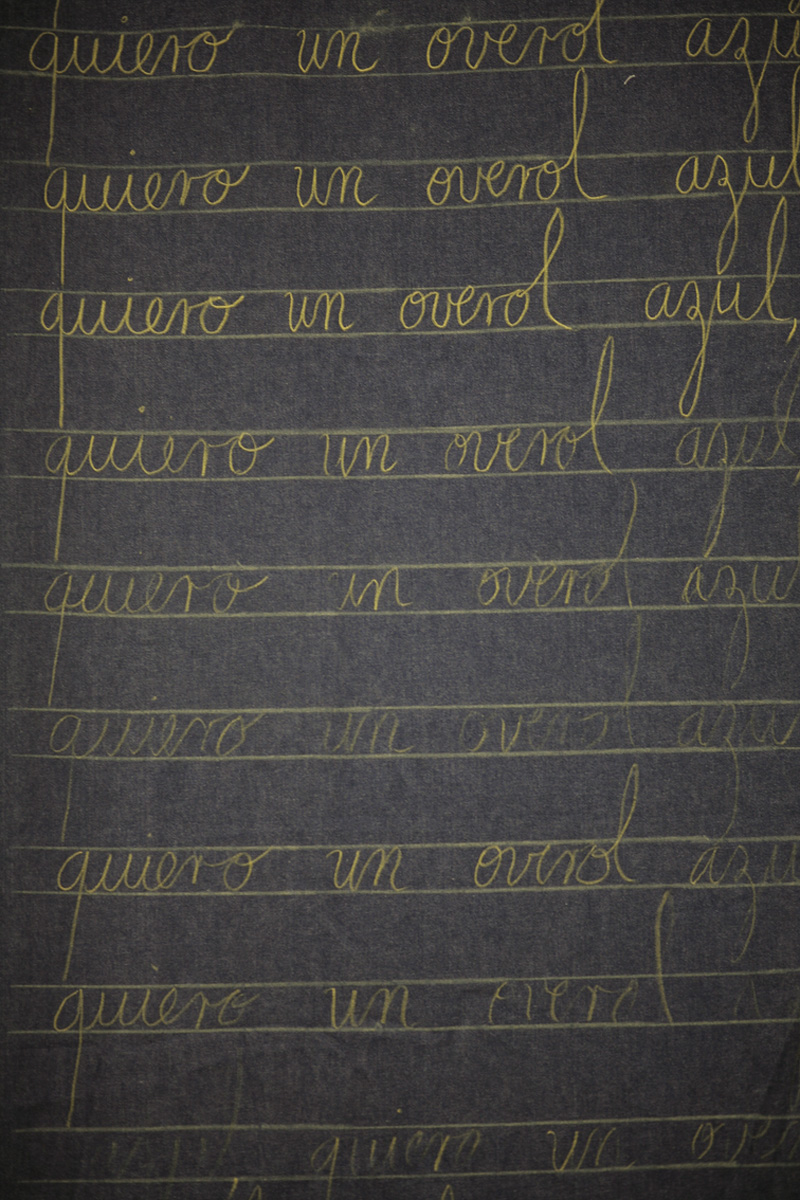 quiero un overol azul
quiero un overol azul
quiero un overol azul,
quiero un overol azul,
quiero un overol azu
quiero un overol azu
quiero un overol azu
quiero un overol
quiero un ove